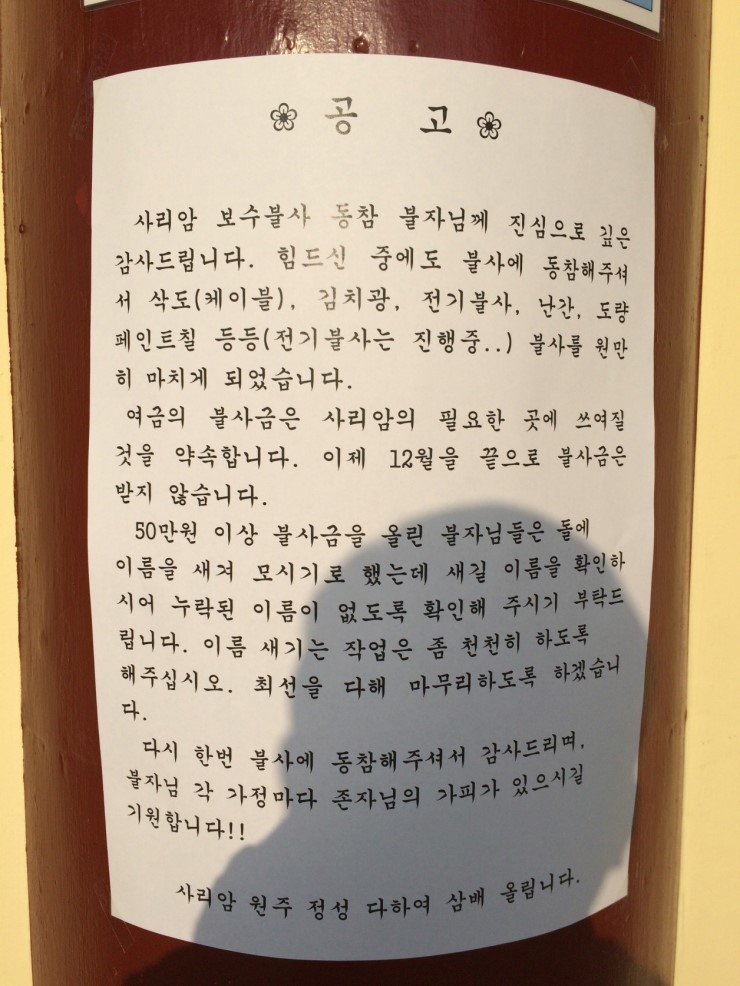 ❀ 공 고 ❀
사리암 보수불사 동참 불자님께 진심으로 깊은
감사드립니다. 힘드신 중에도 불사에 동참해주셔
서 삭도(케이블), 김치광, 전기불사, 난간, 도량
페인트칠 등등(전기불사는 진행중..) 불사를 원만
히 마치게 되었습니다.
여금의 불사금은 사리암의 필요한 곳에 쓰여질
것을 약속합니다. 이제 12월을 끝으로 불사금은
받지 않습니다.
50만원 이상 불사금을 올린 불자님들은 돌에
이름을 새겨 모시기로 했는데 새길 이름을 확인하
시어 누락된 이름이 없도록 확인해 주시기 부탁드
립니다. 이름 새기는 작업은 좀 천천히 하도록
해주십시오. 최선을 다해 마무리하도록 하겠습니
다.
다시 한번 불사에 동참해주셔서 감사드리며,
불자님 각 가정마다 존자님의 가피가 있으시길
기원합니다!!
사리암 원주 정성 다하여 삼배 올립니다.